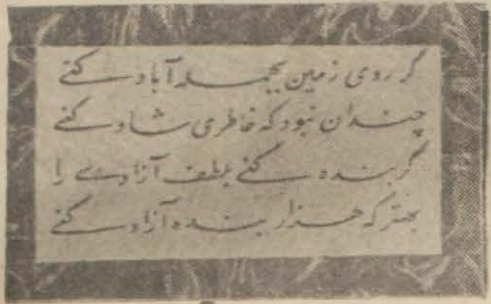 گر روی زمین بجمله آباد کنے
چندان نبود که خاطری شاد کنے
گر بنده کنے بلطف آزادے را
بهتر که هزار بنده آزاد کنے